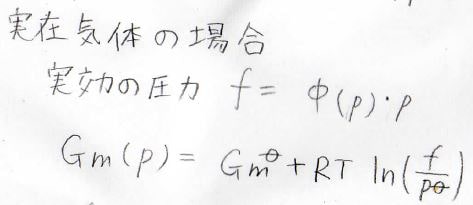 実在気体の場合
実効の圧力 f = φ(p)·p
Gm(p) = Gm⦵ + RT ln(f/p⦵)